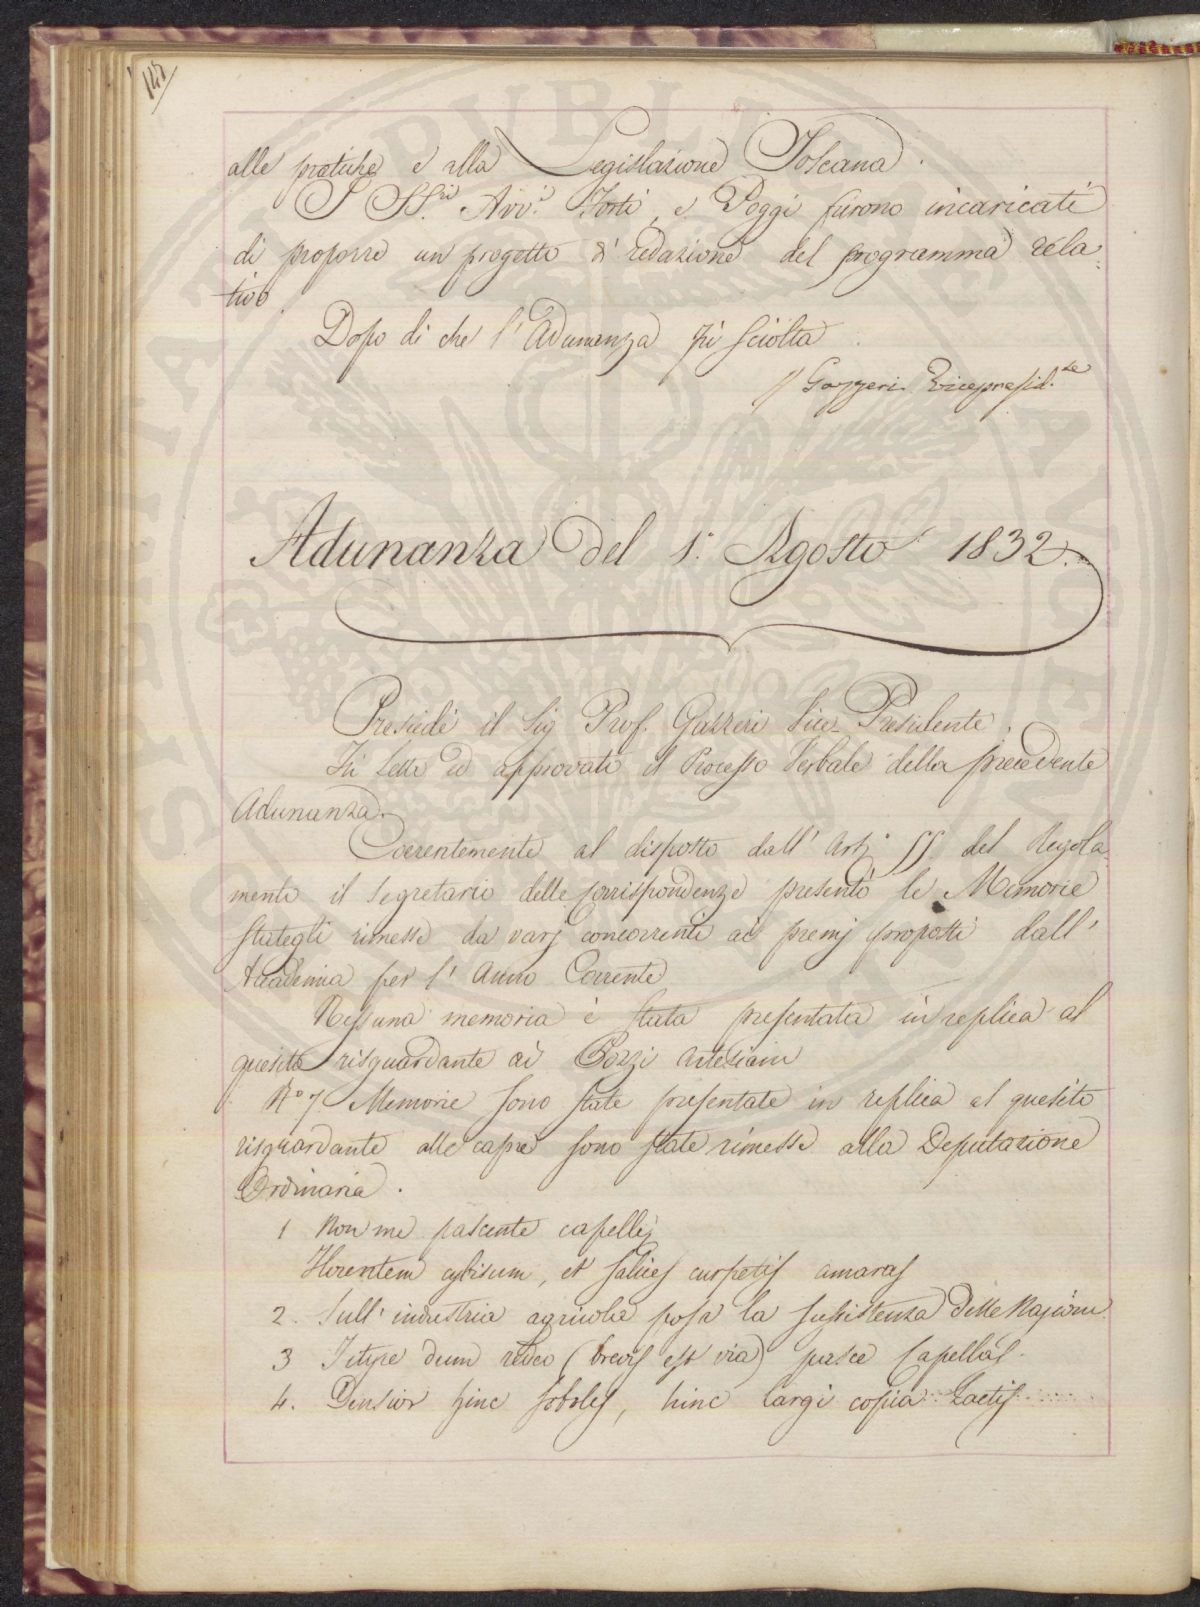 alle pratiche e alla Legislazione Toscana.
I SS.ri Avv.i Forti, e Poggi furono incaricati
di proporre un progetto d' redazione del programma rela-
tivo.
Dopo di che l' Adunanza fù sciolta.
Gazzeri Vicepresid.te
Adunanza del 1.° Agosto 1832.
Presiede il Sig Prof. Gazzeri Vice-Presidente.
Fù Letto ed approvato il Processo Verbale della precedente
Adunanza.
Coerentemente al disposto dall' Art.° 55. del Regola-
mento il Segretario delle corrispondenze presentò le Memorie
stategli rimesse da varj concorrenti ai premj proposti dall'
Accademia per l' Anno Corrente
Nessuna memoria è stata presentata in replica al
quesito risguardante ai Pozzi Artesiani
N.° 7 Memorie sono state presentate in replica al quesito
risguardante alle capre sono state rimesse alla Deputazione
Ordinaria.
1 Non me pascente capellæ
Florentem cytisum, et salices carpetis amaras
2. Sull' industria agricola posa la sussistenza delle Nazioni
3 Tityre dum redeo (brevis est via) pasce Capellas.
4. Densior hinc soboles, hinc largi copia Lactis